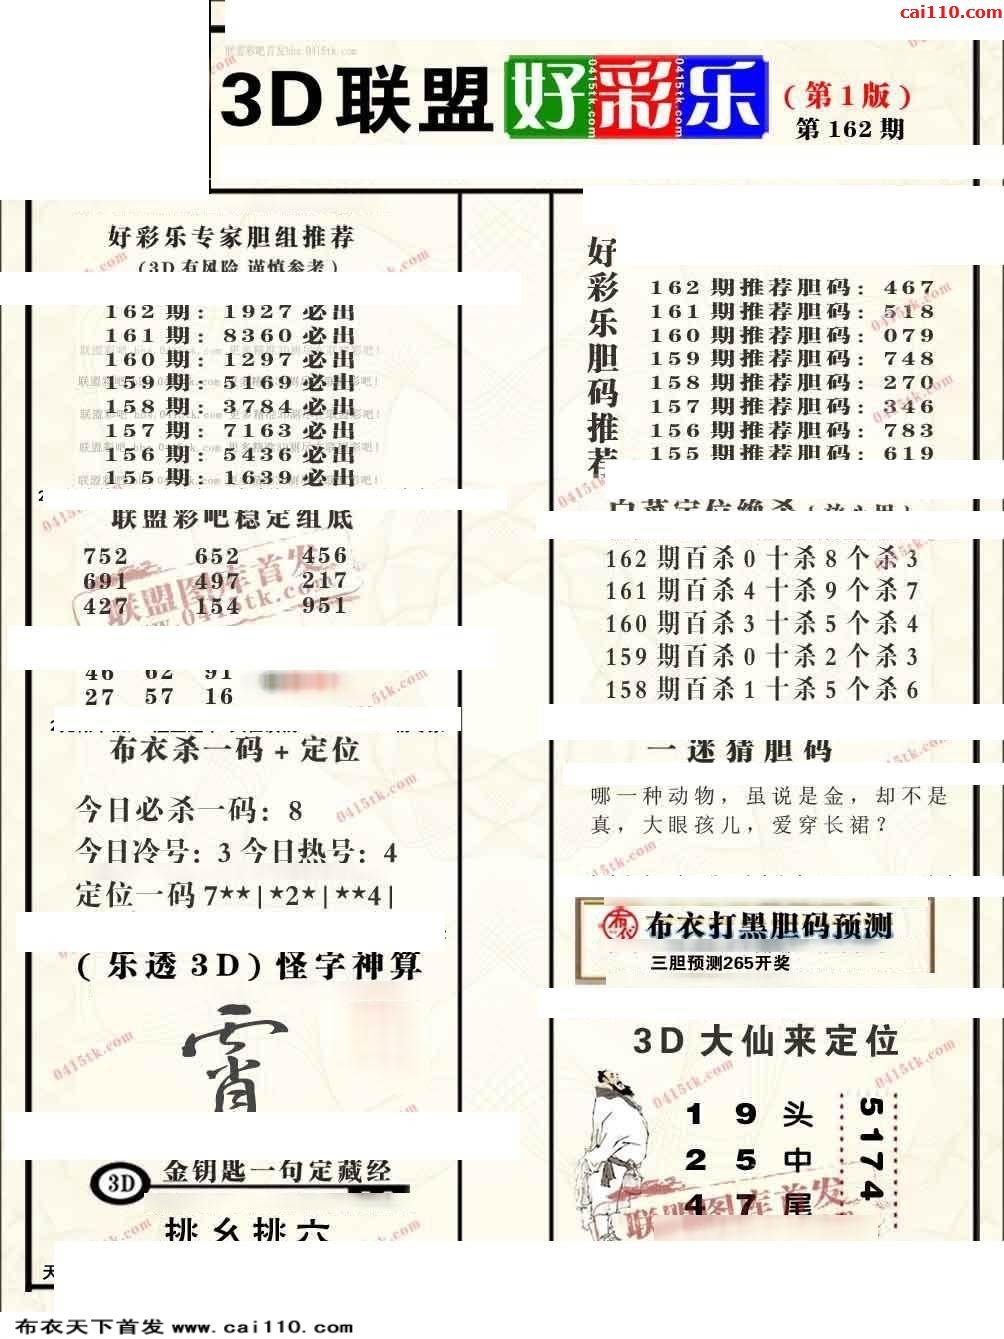 cai110.com
3D联盟好彩乐
(第1版)
第162期
好彩乐专家胆组推荐
(3D有风险 谨慎参考)
162期: 1927必出
161期: 8360必出
160期: 1297必出
159期: 5169必出
158期: 3784必出
157期: 7163必出
156期: 5436必出
155期: 1639必出
联盟彩吧稳定组底
752 652 456
691 497 217
427 154 951
46 62 91
27 57 16
布衣杀一码+定位
今日必杀一码: 8
今日冷号: 3 今日热号: 4
定位一码 7**|*2*|**4|
(乐透3D)怪字神算
霄
3D 金钥匙一句定藏经
挑幺挑六
天
好彩乐胆码推荐
162期推荐胆码: 467
161期推荐胆码: 518
160期推荐胆码: 079
159期推荐胆码: 748
158期推荐胆码: 270
157期推荐胆码: 346
156期推荐胆码: 783
155期推荐胆码: 619
162期百杀0十杀8个杀3
161期百杀4十杀9个杀7
160期百杀3十杀5个杀4
159期百杀0十杀2个杀3
158期百杀1十杀5个杀6
一迷猜胆码
哪一种动物，虽说是金，却不是
真，大眼孩儿，爱穿长裙？
布衣打黑胆码预测
三胆预测265开奖
3D大仙来定位
1 9 头
2 5 中
4 7 尾
5174
联盟图库首发
0415tk.com
布衣天下首发 www.cai110.com